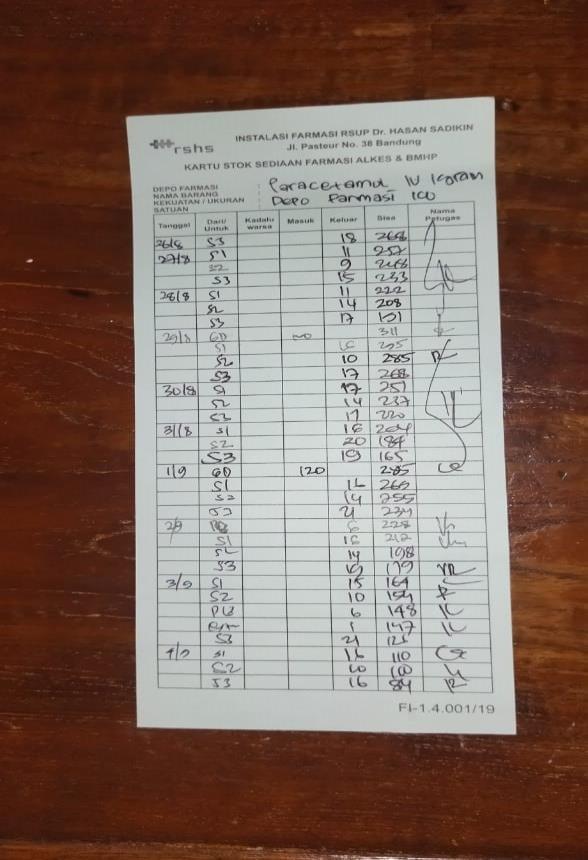 rshs
INSTALASI FARMASI RSUP Dr. HASAN SADIKIN
Jl. Pasteur No. 38 Bandung
KARTU STOK SEDIAAN FARMASI ALKES & BMHP
DEPO FARMASI :
NAMA BARANG : Paracetamol IV 1gram
KEKUATAN / UKURAN : Depo Farmasi ICU
SATUAN
Tanggal Dari/Untuk Kadaluwarsa Masuk Keluar Sisa Nama Petugas
26/8 S3 18 268
27/8 S1 11 257
S2 9 248
S3 15 233
28/8 S1 11 222
S2 14 208
S3 17 191
29/8 GD 311
S1 16 295
S2 10 285
S3 17 268
30/8 S1 17 251
S2 14 237
S3 17 220
31/8 S1 16 204
S2 20 184
S3 19 165
1/9 GD 120 285
S1 16 269
S2 14 255
S3 21 234
2/9 6 228
S1 16 212
S2 14 198
S3 19 179
3/9 S1 15 164
S2 10 154
6 148
1 147
S3 21 126
4/9 S1 16 110
S2 10 100
S3 16 84
FI-1.4.001/19